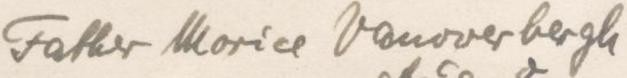 Father Morice Vanoverbergh